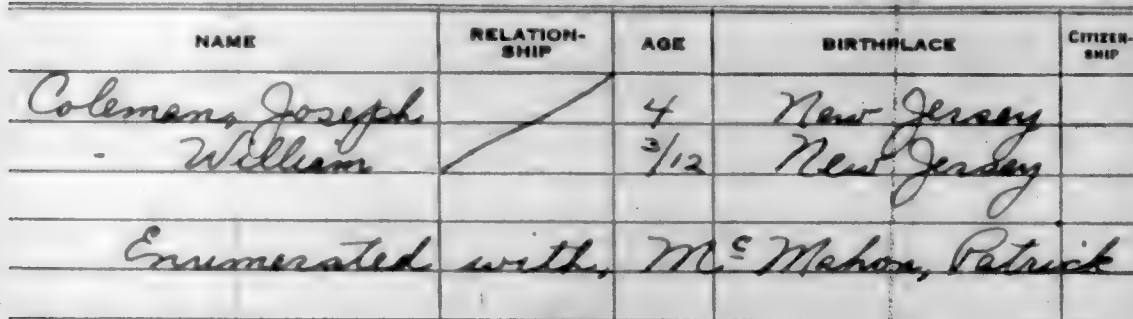 NAME RELATION-SHIP AGE BIRTHPLACE CITIZEN-SHIP
Coleman, Joseph 4 New Jersey
- William 3/12 New Jersey
Enumerated with, Mc Mahon, Patrick